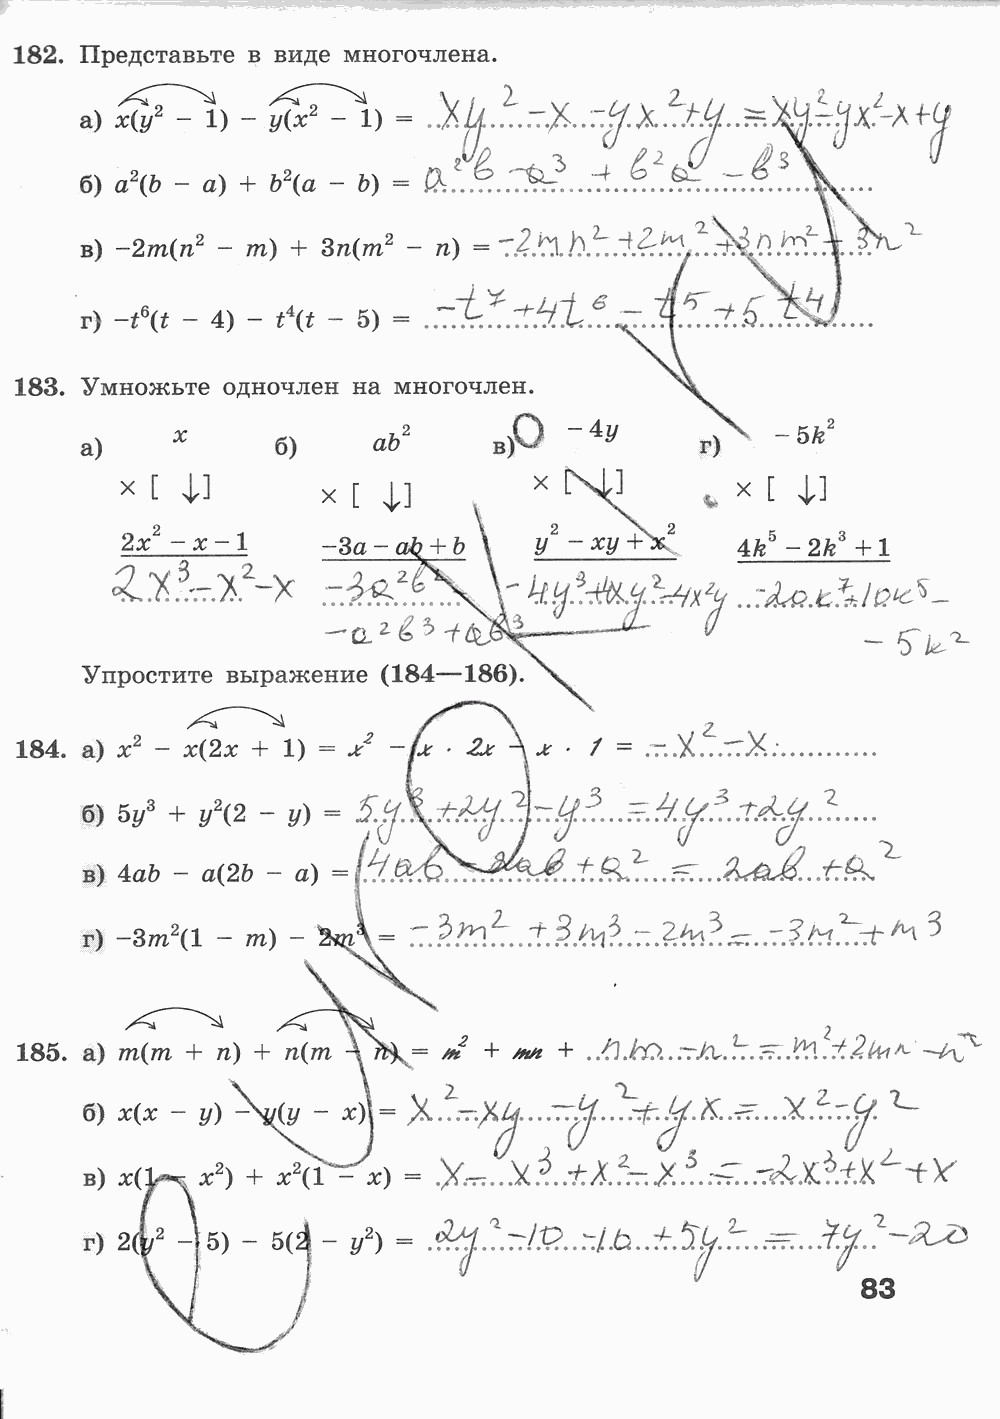 182. Представьте в виде многочлена.
а) x(y² − 1) − y(x² − 1) = xy² − x − yx² + y = xy² − yx² − x + y
б) a²(b − a) + b²(a − b) = a²b − a³ + b²a − b³
в) −2m(n² − m) + 3n(m² − n) = −2mn² + 2m² + 3nm² − 3n²
г) −t⁶(t − 4) − t⁴(t − 5) = −t⁷ + 4t⁶ − t⁵ + 5t⁴
183. Умножьте одночлен на многочлен.
а) x б) ab² в) −4y г) −5k²
× [ ↓] × [ ↓] × [ ↓] × [ ↓]
2x² − x − 1 −3a − ab + b y² − xy + x² 4k⁵ − 2k³ + 1
2x³ − x² − x −3a²b² −4y³ + 4xy² − 4x²y −20k⁷ + 10k⁵ −
−a²b³ + ab³ −5k²
Упростите выражение (184—186).
184. а) x² − x(2x + 1) = x² − x · 2x − x · 1 = −x² − x
б) 5y³ + y²(2 − y) = 5y³ + 2y² − y³ = 4y³ + 2y²
в) 4ab − a(2b − a) = 4ab − 2ab + a² = 2ab + a²
г) −3m²(1 − m) − 2m³ = −3m² + 3m³ − 2m³ = −3m² + m³
185. а) m(m + n) + n(m − n) = m² + mn + nm − n² = m² + 2mn − n²
б) x(x − y) − y(y − x) = x² − xy − y² + yx = x² − y²
в) x(1 − x²) + x²(1 − x) = x − x³ + x² − x³ = −2x³ + x² + x
г) 2(y² − 5) − 5(2 − y²) = 2y² − 10 − 10 + 5y² = 7y² − 20
83